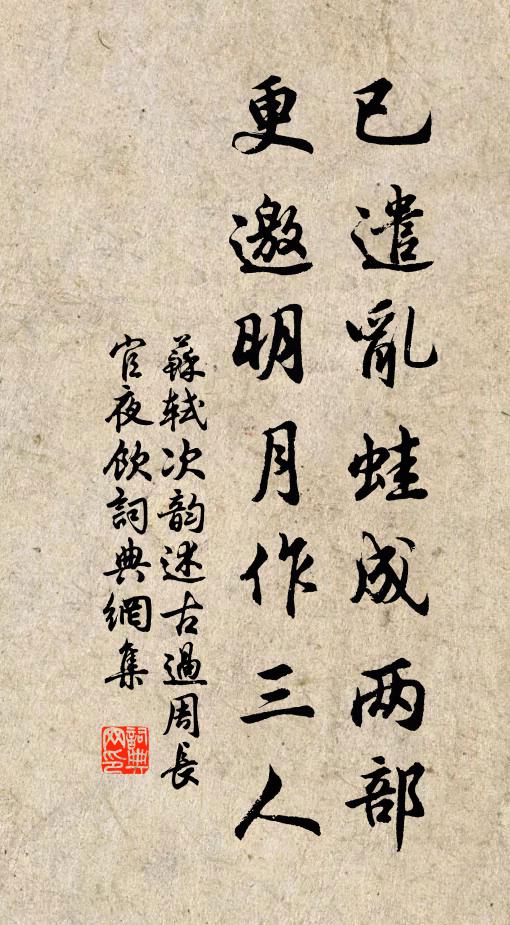 已遣亂蛙成两部
更邀明月作三人
蘇軾次韵述古過周長
官夜飲詞典網集
詞典
网印